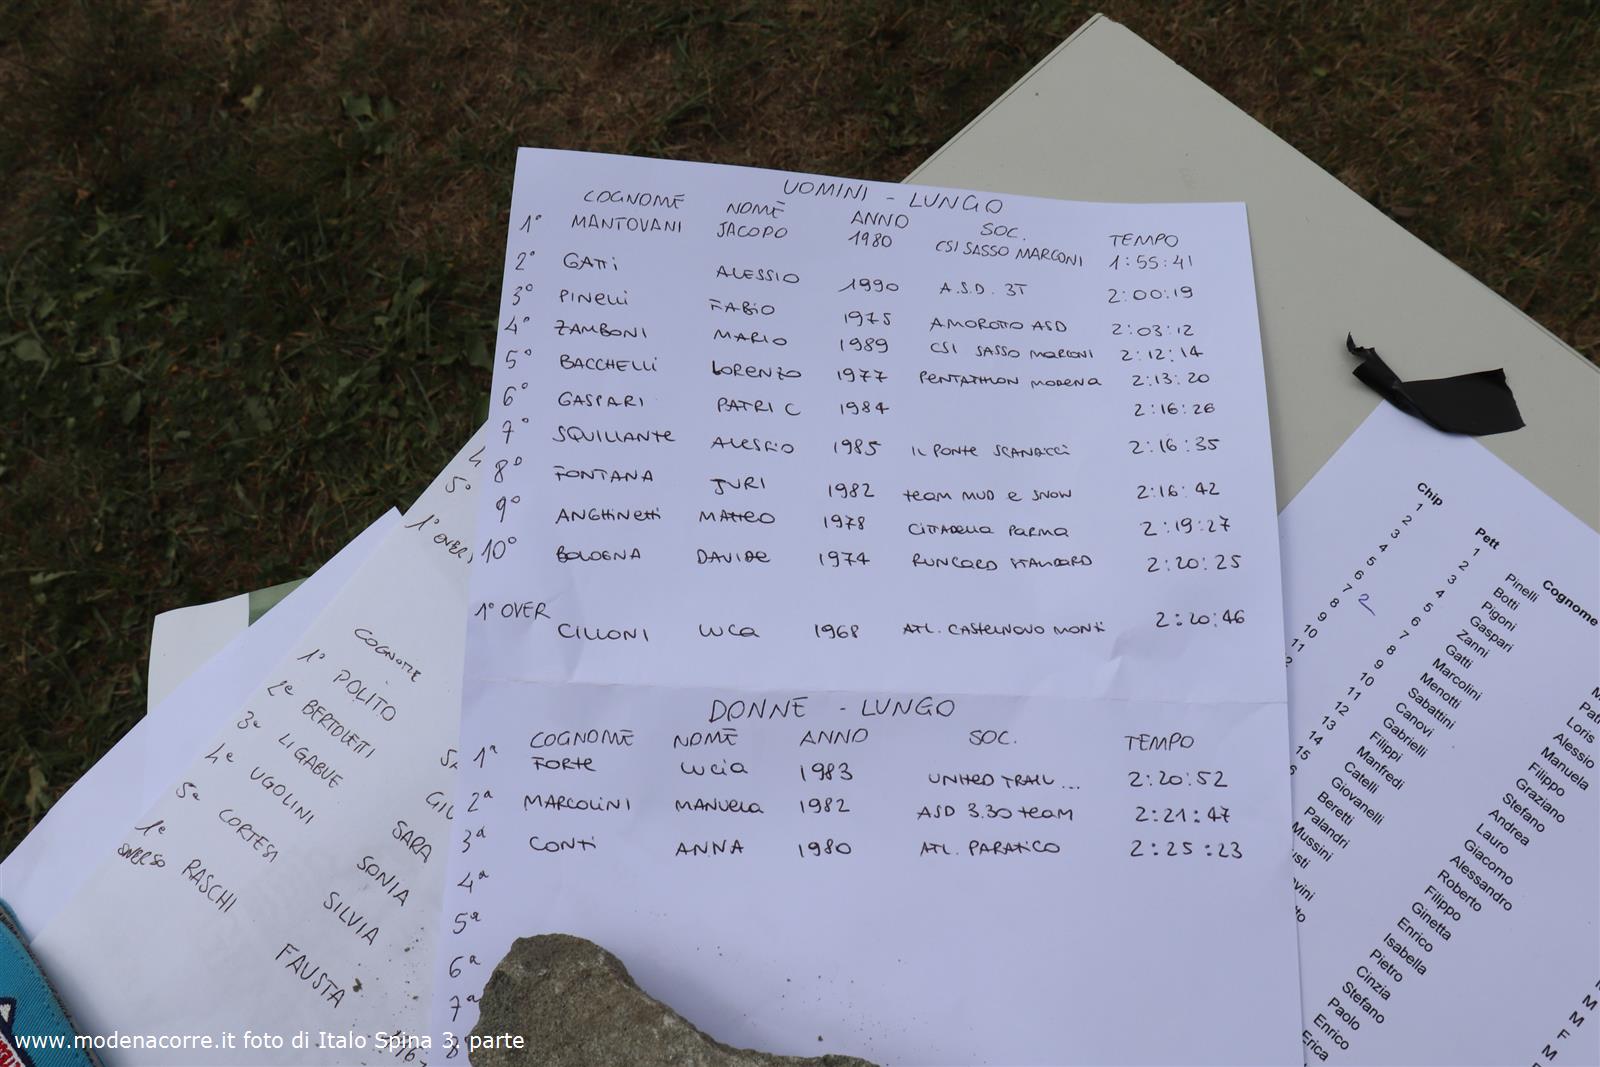 UOMINI - LUNGO
COGNOME NOME ANNO SOC. TEMPO
1° MANTOVANI JACOPO 1980 CSI SASSO MARCONI 1:55:41
2° GATTI ALESSIO 1990 A.S.D. 3T 2:00:19
3° PINELLI FABIO 1975 AMOROTTO ASD 2:03:12
4° ZAMBONI MARIO 1989 CSI SASSO MARCONI 2:12:14
5° BACCHELLI LORENZO 1977 PENTATHLON MODENA 2:13:20
6° GASPARI PATRIC 1984 2:16:26
7° SQUILLANTE ALESSIO 1985 IL PONTE SCANDICCI 2:16:35
8° FONTANA JURI 1982 TEAM MUD E SNOW 2:16:42
9° ANGHINETTI MATTEO 1978 CITTADELLA PARMA 2:19:27
10° BOLOGNA DAVIDE 1974 RUNCARD STANDARD 2:20:25
1° OVER CILLONI LUCA 1968 ATL. CASTELNOVO MONTI 2:20:46
DONNE - LUNGO
COGNOME NOME ANNO SOC. TEMPO
1ª FORTE LUCIA 1983 UNITED TRAIL... 2:20:52
2ª MARCOLINI MANUELA 1982 ASD 3.30 TEAM 2:21:47
3ª CONTI ANNA 1980 ATL. PARATICO 2:25:23
4ª
5ª
6ª
7ª
8ª
4
5°
1° OVER
COGNOME
1° POLITO
2ª BERTOLETTI
3ª LIGABUE
4ª UGOLINI SARA
5ª CORTESI SONIA
1ª RASCHI SILVIA
FAUSTA
Chip Pett Cognome
1 1 Pinelli
2 2 Botti
3 3 Pigoni
4 4 Gaspari
5 5 Zanni
6 6 Gatti
7 2 7 Marcolini
8 8 Menotti
9 9 Sabattini
10 10 Canovi
11 11 Gabrielli
12 Filippi
13 Manfredi
14 Catelli
15 Giovanelli
Beretti
Palandri
Mussini
Loris
Alessio
Manuela
Filippo
Graziano
Stefano
Andrea
Lauro
Giacomo
Alessandro
Roberto
Filippo
Ginetta
Enrico
Isabella
Pietro
Cinzia
Stefano
Paolo
Enrico
Erica
M
M
F
M
www.modenacorre.it foto di Italo Spina 3. parte